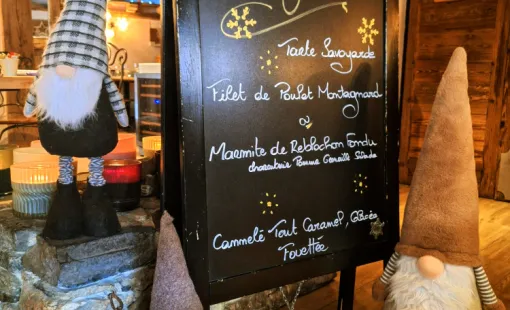 Tarte Savoyarde
Filet de Poulet Montagnard
ou
Marmite de Reblochon Fondu
charcuterie Pomme Grenaille Salade
Cannelé Tout Caramel,
Fouettée